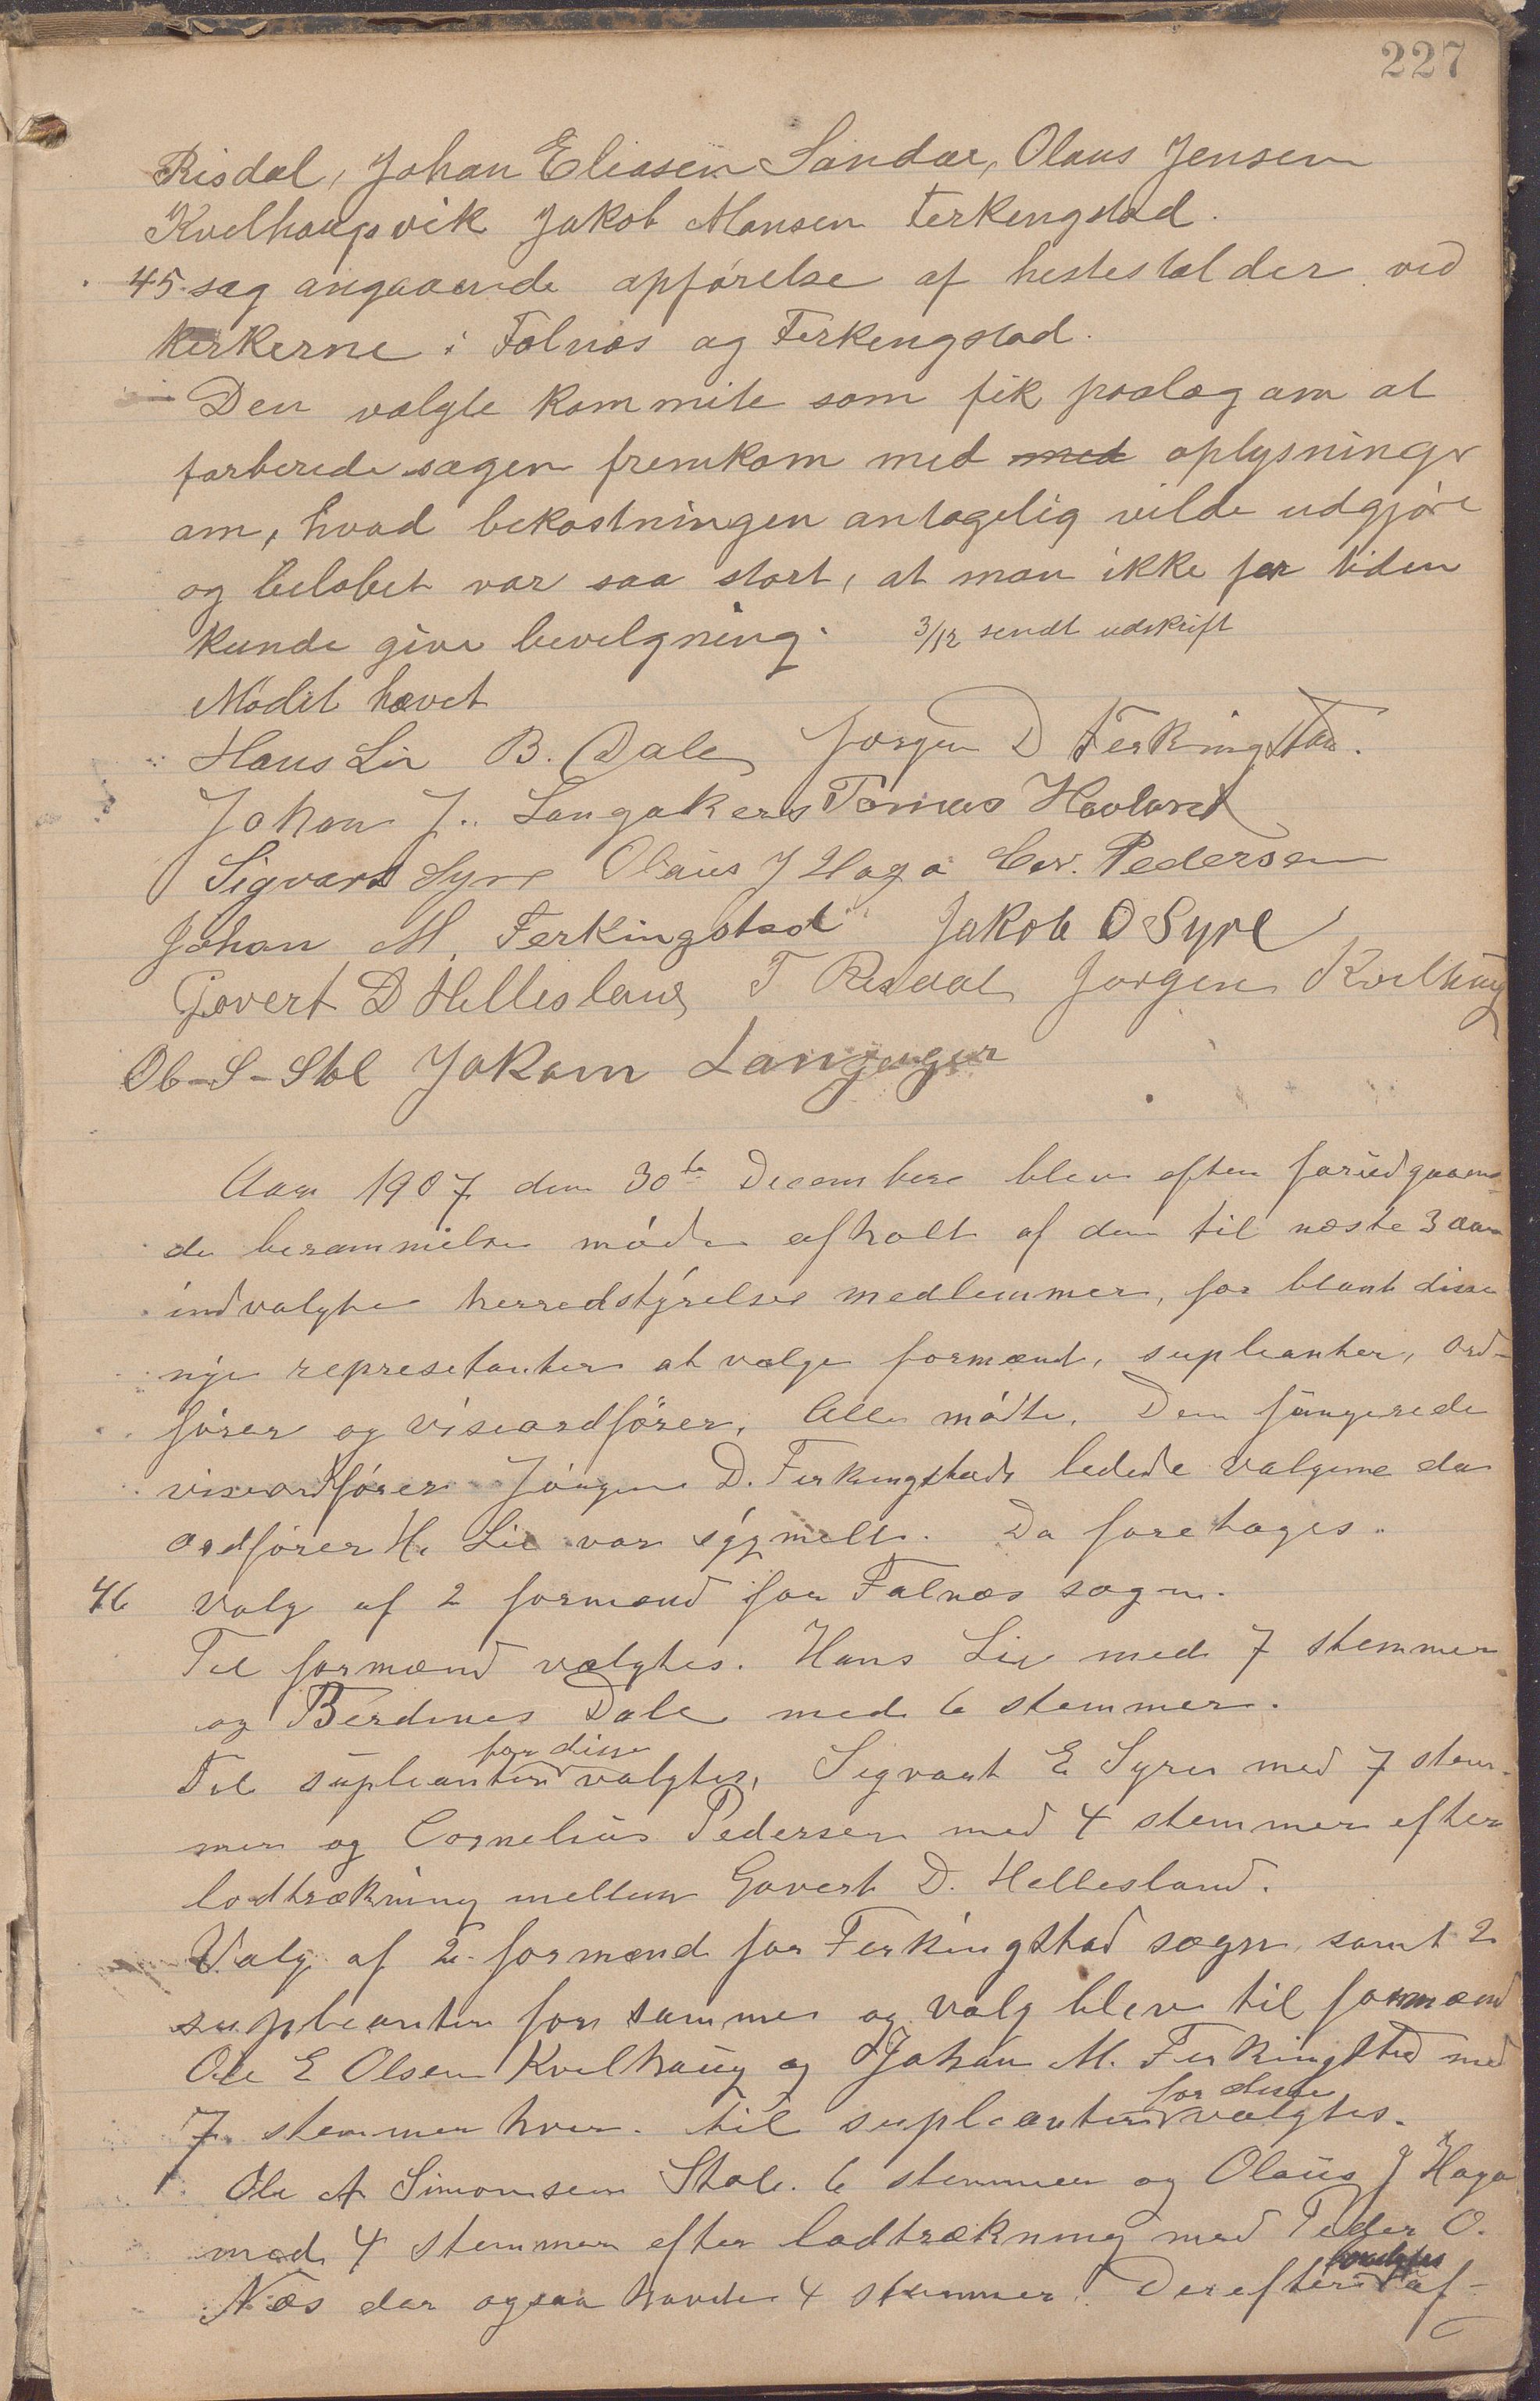 227
Risdal, Johan Eliasen Sandar, Olaus Jensen
Kvelhaugsvik Jakob Mansen Ferkengstad.
45. sag angaaende opførelse af hestestalder ved
kerkerne i Falnæs og Ferkengstad.
Den valgte kommite som fik paalæg om at
forberede sagen fremkom med med oplysninger
om, hvad bekostningen antagelig vilde udgjøre
og beløbet var saa stort, at man ikke for tiden
kunde give bevelgning. 3/12 sendt udskrift
Mødet hævet
Hans Lie B. Dale Jørgen D Ferkingstad.
Johan J. Langaker Tomas Havland
Sigvart Syre Olaus J Haga Cor. Pedersen
Johan M. Ferkingstad Jakob O Syre
Govert D Hellesland T Risdal Jørgen Kvelhaug
Ob-S-Stol Jakom
Aar 1907 den 30te December blev efter forudgaaen-
de berammelse møde afholt af den til næste 3 aar
indvalgte herredstyrelses medlemmer, for blant disse
nye represetanter at vælge formænd, supleanter, ord-
fører og viseordfører. Alle mødte. Den fungerede
viseordfører Jørgen D. Ferkingstad ledede valgene da
ordfører H. Lie var sygmelt. Da foretoges.
46 Valg af 2 formænd for Falnæs sogn.
Til formænd valgtes. Hans Lie med 7 stemmer
og Berdines Dale med 6 stemmer.
for disse
Til supleanter valgtes, Sigvart E Syre med 7 stem-
mer og Cornelius Pedersen med 4 stemmer efter
lodtrækning mellem Govert D. Hellesland.
Valg af 2 formænd for Ferkingstad sogn samt 2
supleanter for samme og valg blev til formænd
Ole E Olsen Kvelhaug og Johan M. Ferkingstad med
for disse
7 stemmer hver. Til supleanter valgtes.
Ole A Simonsen Stole 6 stemmer og Olaus J Haga
med 4 stemmer efter lodtrækning med Peder O.
Næs der ogsaa havde 4 stemmer. Derefter af-